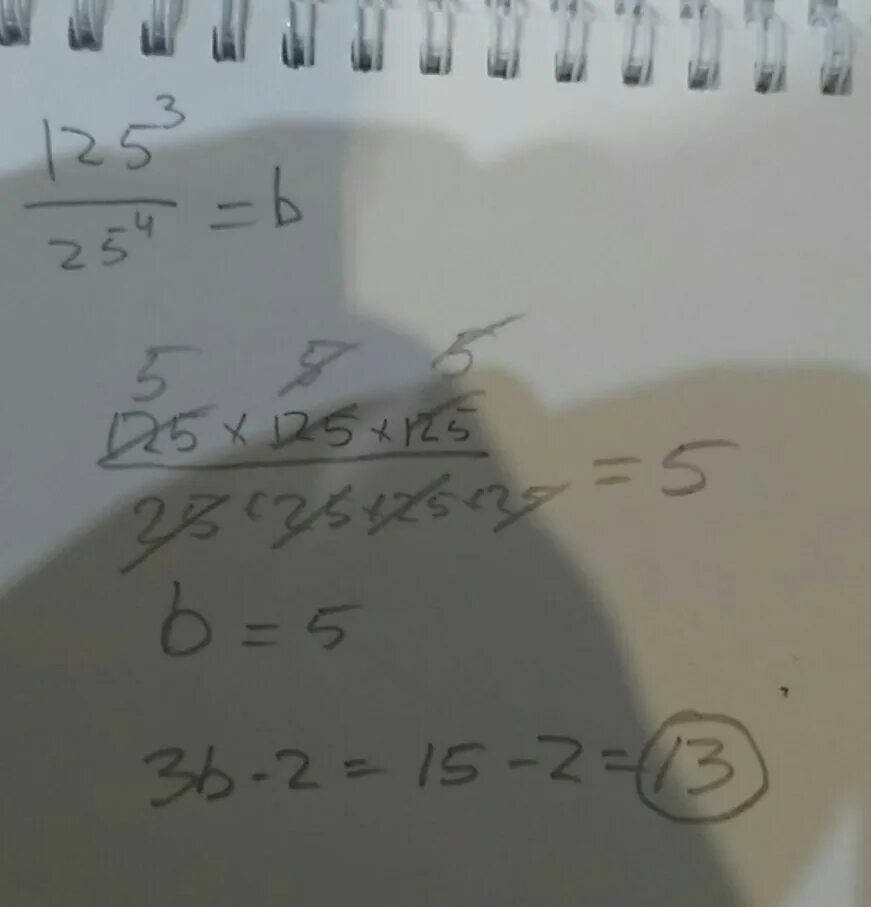 125³
25⁴ = b
5 5 5
125 × 125 × 125
25 × 25 × 25 × 25 = 5
b = 5
3b - 2 = 15 - 2 = 13